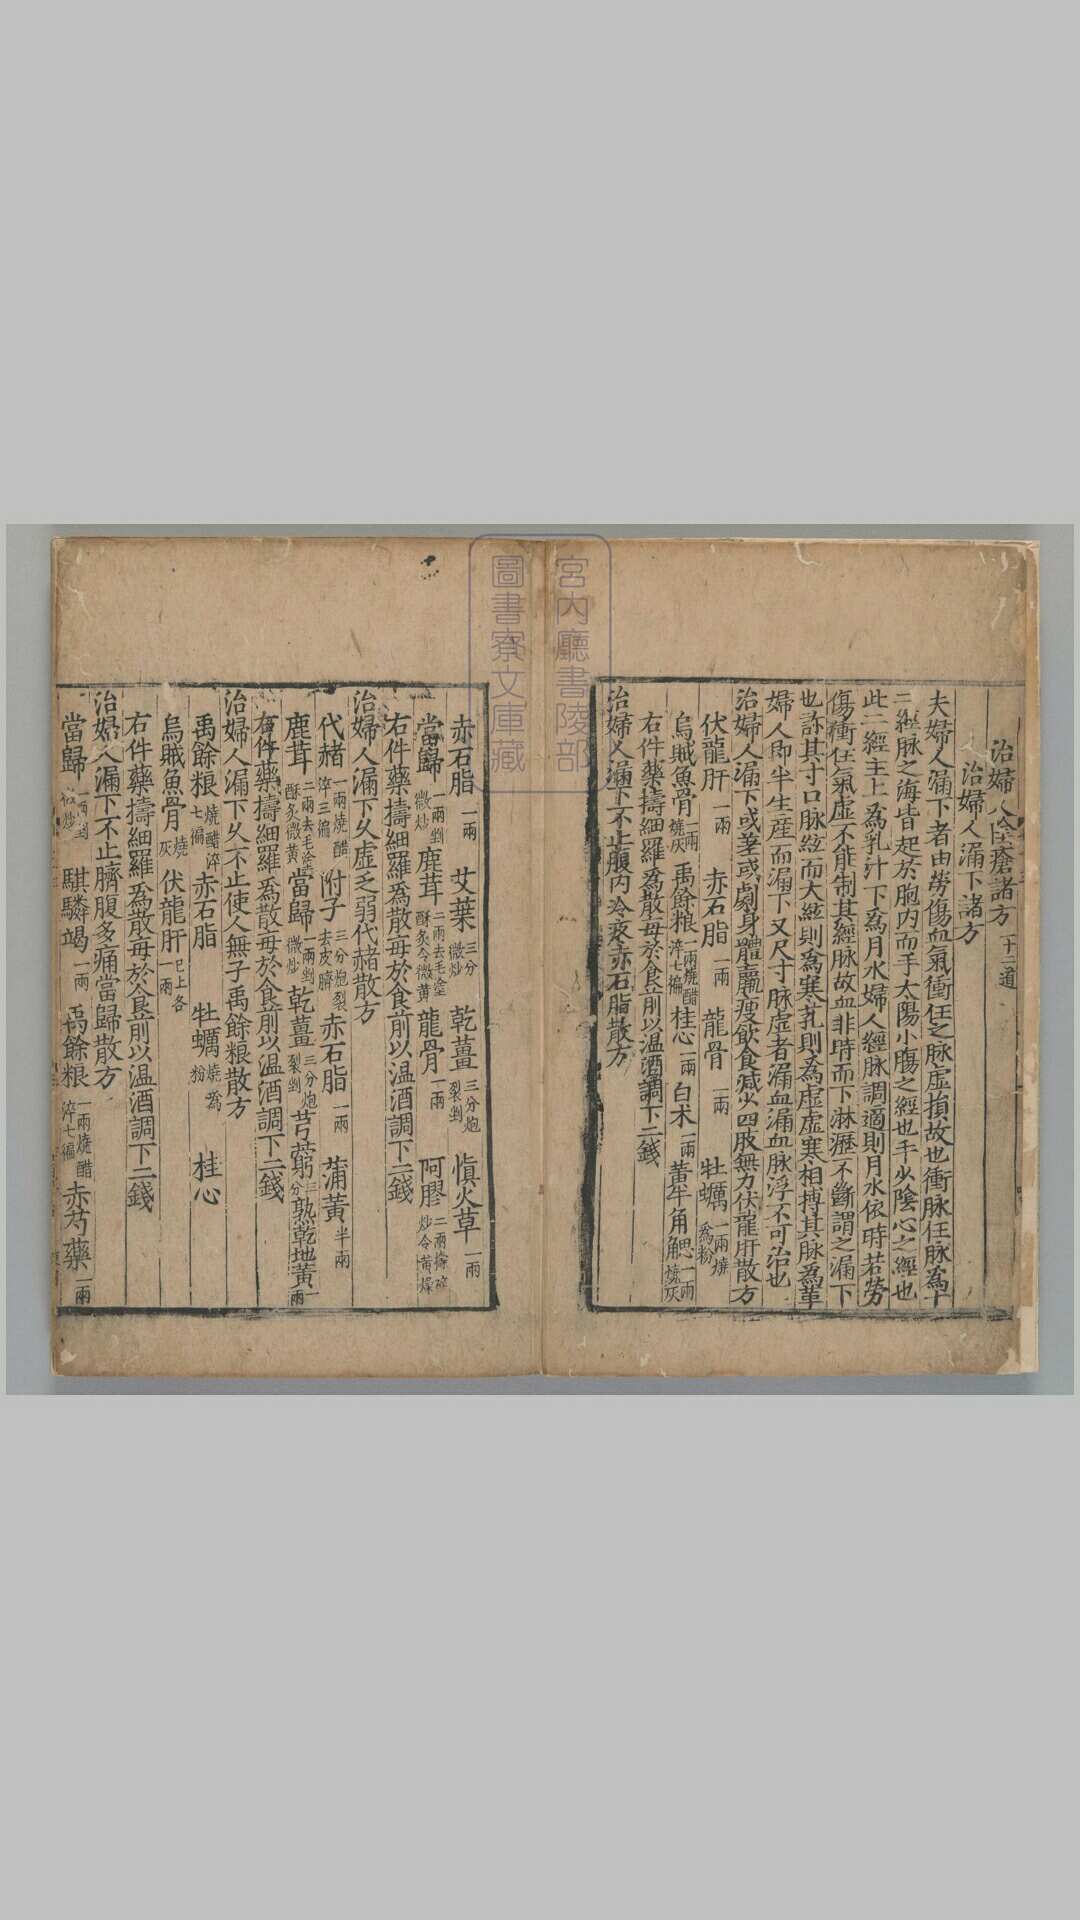 治婦人陰瘡諸方 十二道
治婦人漏下諸方
夫婦人漏下者由勞傷血氣衝任之脉虛損故也衝脉任脉為十
二經脉之海皆起於胞内而手太陽小膓之經也手少陰心之經也
此二經主上為乳汁下為月水婦人經脉調適則月水依時若勞
傷衝任氣虛不能制其經脉故血非時而下淋瀝不斷謂之漏下
也診其寸口脉絃而大絃則為寒芤則為虛虛寒相搏其脉為革
婦人即半生産而漏下又尺寸脉虛者漏血漏血脉浮不可治也
治婦人漏下或瘥或劇身體羸瘦飲食減少四肢無力伏龍肝散方
伏龍肝一兩 赤石脂一兩 龍骨一兩 牡蠣一兩燒為粉
烏賊魚骨一兩燒灰 禹餘粮一兩燒醋淬七徧 桂心一兩 白术一兩 黃牛角䚡一兩燒灰
右件藥擣細羅為散每於食前以温酒調下二錢
治婦人漏下不止腹内冷疼赤石脂散方
赤石脂一兩 艾葉三分微炒 乾薑三分炮裂剉 慎火草一兩
當歸一兩剉微炒 鹿茸二兩去毛塗酥炙令微黃 龍骨一兩 阿膠二兩擣碎炒令黃燥
右件藥擣細羅為散每於食前以温酒調下二錢
治婦人漏下久虛乏弱代赭散方
代赭一兩燒醋淬三徧 附子三分炮裂去皮臍 赤石脂一兩 蒲黃半兩
鹿茸二兩去毛塗酥炙微黃 當歸一兩剉微炒 乾薑三分炮裂剉 芎藭三分 熟乾地黃一兩
右件藥擣細羅為散每於食前以温酒調下二錢
治婦人漏下久不止使人無子禹餘粮散方
禹餘粮燒醋淬七徧 赤石脂 牡蠣燒為粉 桂心
烏賊魚骨燒灰 伏龍肝已上各一兩
右件藥擣細羅為散每於食前以温酒調下二錢
治婦人漏下不止臍腹多痛當歸散方
當歸一兩剉微炒 騏驎竭一兩 禹餘粮一兩燒醋淬七徧 赤芍藥一兩
宮内廳書陵部
圖書寮文庫藏